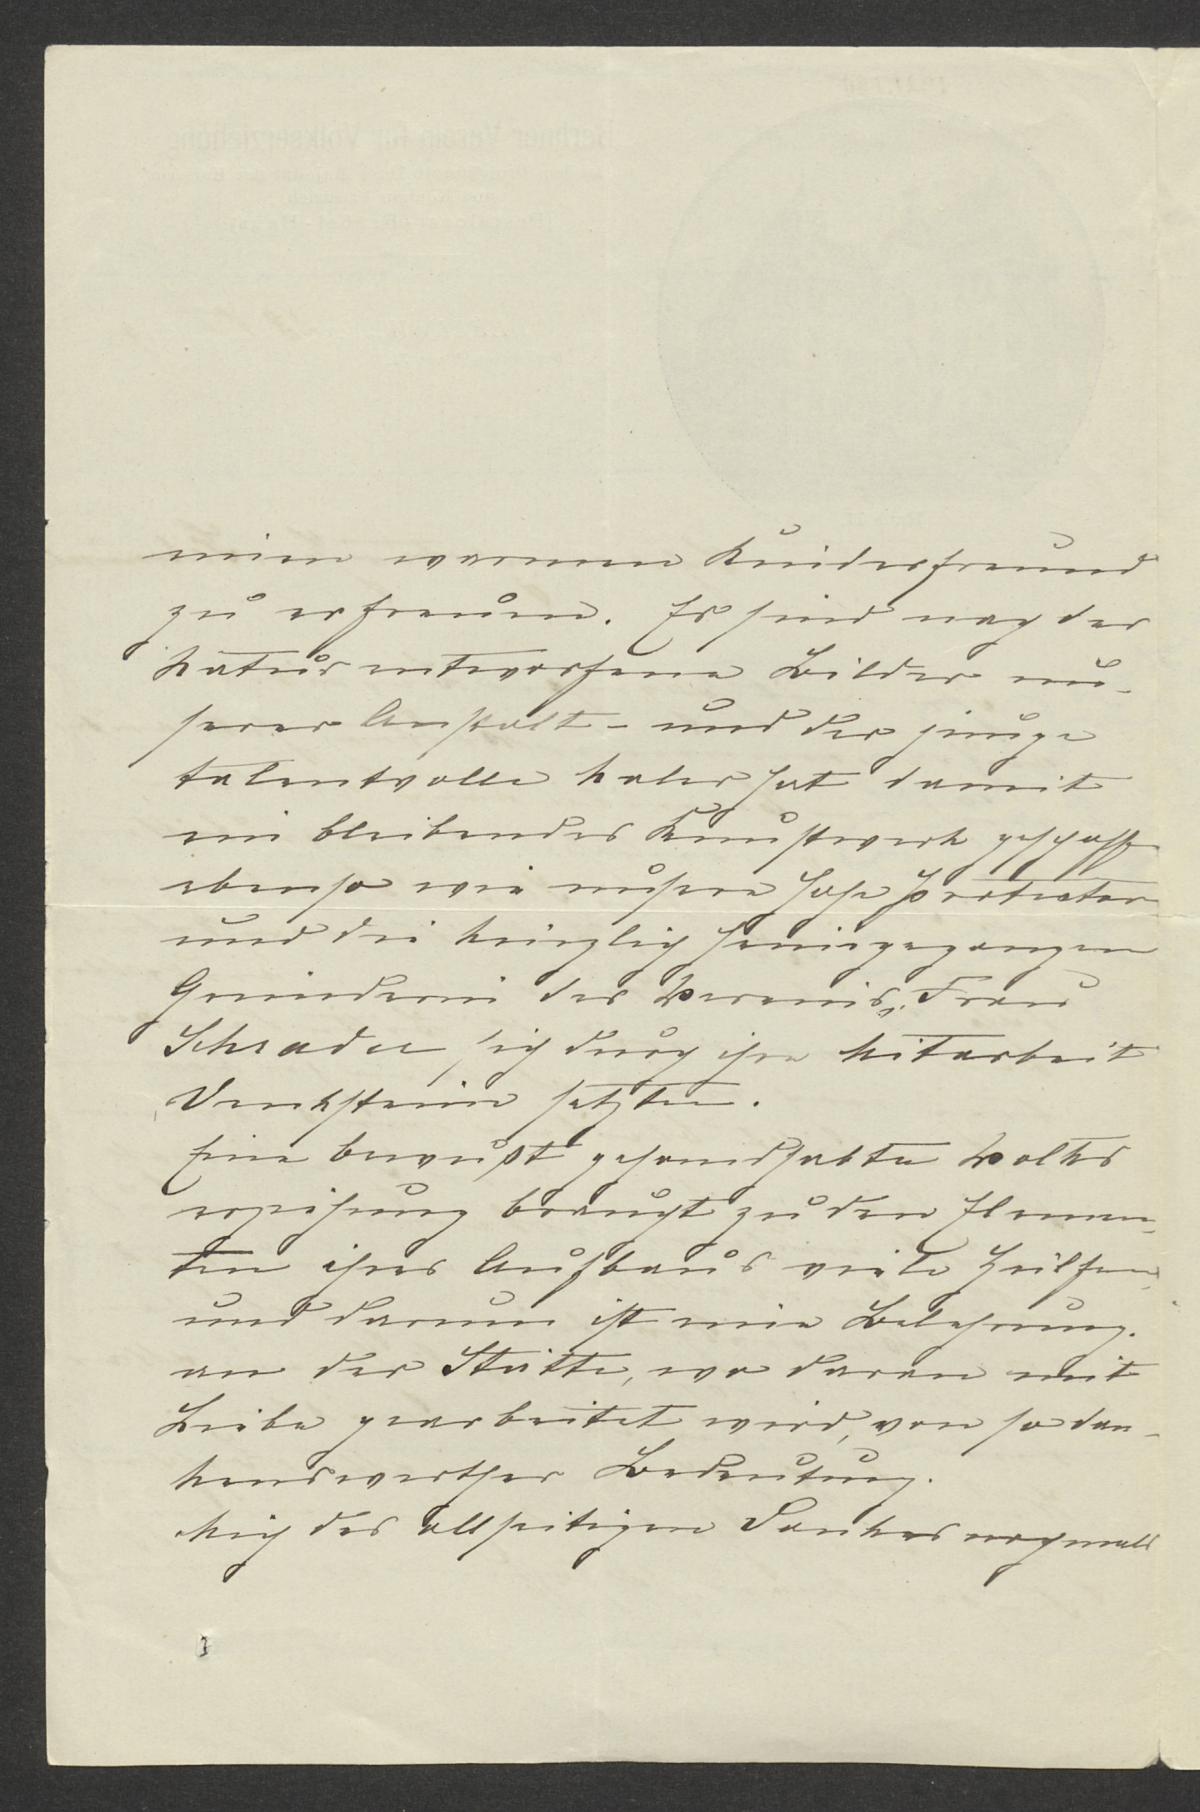 einen warmen Kinderfreund
zu erfreuen. Es sind nach der
Natur entworfene Bilder un-
serer Anstalt - und der junge
talentvolle Maler hat damit
ein bleibendes Kunstwerk geschaff
ebenso wie unsere hohe Protector
und die kürzlich heimgegangen
Gründerin des Vereins, Frau
Schrader sich durch ihre Mitarbeit
Denksteine setzten.
Eine bewußt gehandhabte Volks
erziehung braucht zu den Elemen-
ten ihres Aufbaus viele Hülfen,
und darum ist eine Belehrung.
an der Stätte, wo daran mit
Liebe gearbeitet wird, von so dan-
kenswerther Bedeutung.
Mich des allseitigen Dankes nochmals
Berliner Verein für Volkserziehung